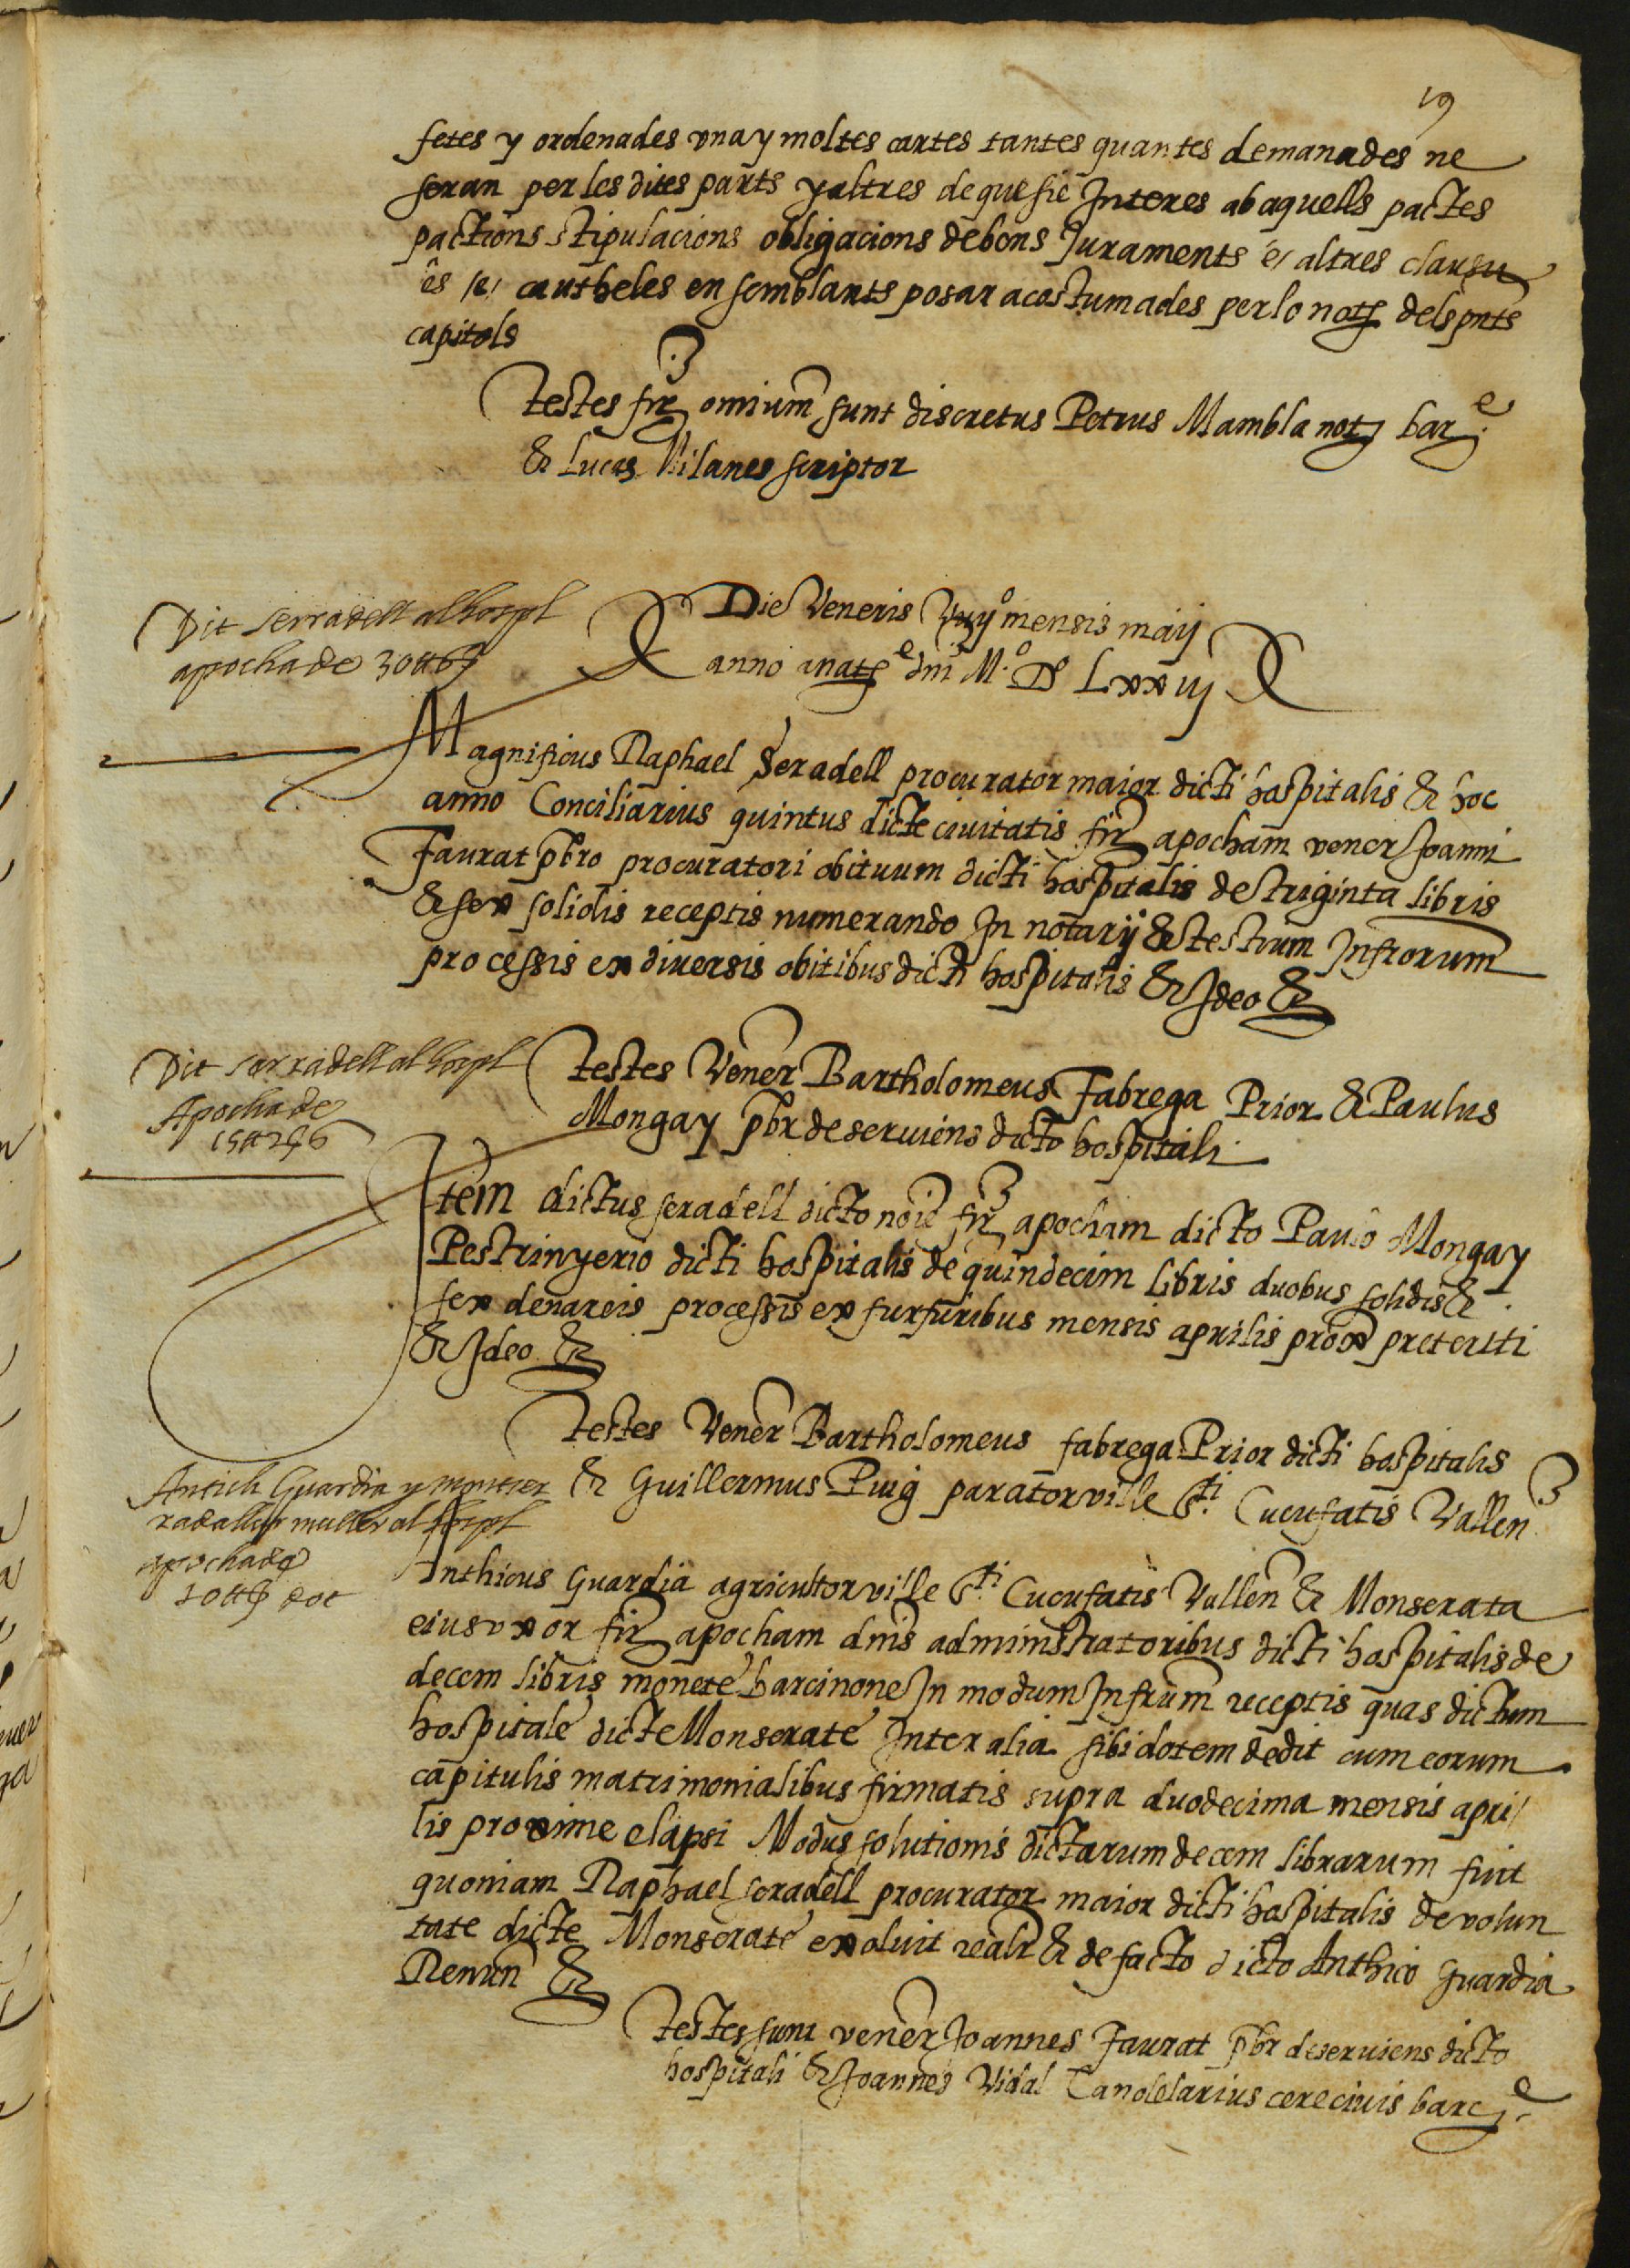 19
fetes y ordenades vna y moltes cartes tantes quantes demanades ne
seran per les dites parts y altres de que sie Interes ab aquells pactes
pactions stipulacions obligacions de bens Juraments e altres clausu
es /e/ cautheles en semblants posar acostumades per lo not dels pnts
capitols
Testes fir omnium sunt discretus Petrus Mambla not bar.e
& Lucas Vilanes scriptor
Die Veneris mensis maij
anno a nat.e dni M.o Do Lxxiij
Dit Serradell al hospl
apocha de 30 ll 6 s
Magnificus Raphael Seradell procurator maior dicti hospitalis & hoc
anno Conciliarius quintus dicte ciuitatis fir apocham vener Joanni
Faurat pbro procuratori obituum dicti hospitalis de triginta libris
& sex solidis receptis numerando In notarij & testium Infrorum
processis ex diuersis obitibus dicti hospitalis & Ideo &
Dit Serradell al hospl
Apocha de
15 ll 2 s 6
Testes Vener Bartholomeus Fabrega Prior & Paulus
Mongay pbr deseruiens dicto hospitali
Item dictus seradell dicto noie fir apocham dicto Paulo Mongay
Pestrinyerio dicti hospitalis de quindecim libris duobus solidis &
sex denareis processis ex furfuribus mensis aprilis prox preteriti
& Ideo &
Testes Vener Bartholomeus fabrega Prior dicti hospitalis
& Guillermus Puig parator ville Sti Cucufatis Vallen
Antich Guardia y
muller al hospl
apocha de
10 ll s dot
Anthicus Guardia agricultor ville Sti Cucufatis Vallen & Monserata
eius vxor fir apocham dnis administratoribus dicti hospitalis de
decem libris monete barcinone In modum Infrum receptis quas dictum
hospitale dicte Monserate Inter alia sibi dotem dedit cum eorum
capitulis matrimonialibus firmatis supra duodecima mensis apri/
lis proxime elapsi Modus solutionis dictarum decem librarum fuit
quoniam Raphael seradell procurator maior dicti hospitalis de volun
tate dicte Monserate exoluit realr & de facto dicto Anthico Guardia
Renun &
Testes sunt vener Joannes Faurat pbr deseruiens dicto
hospitali & Joannes Vidal Candelarius cere ciuis barc.e